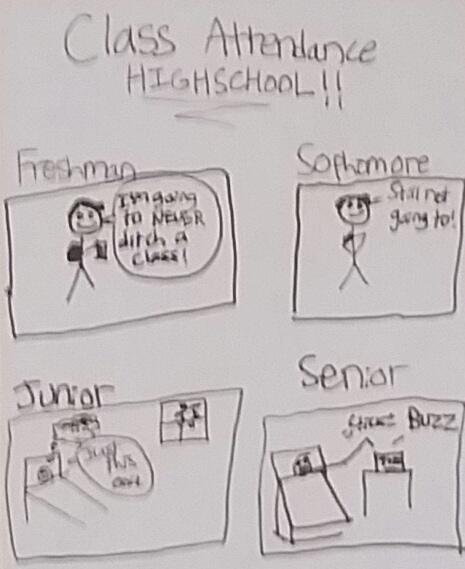 Class Attendance
HIGHSCHOOL!!
Freshman
I'm going
to NEVER
ditch a
CLASS!
Sophomore
Still not
going to!
Junior
Just
this
one
Senior
BUZZ